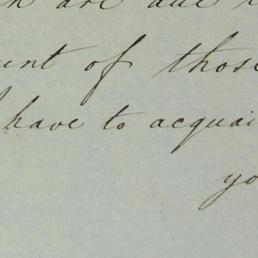 are due
unt of those
have to acquai
yo